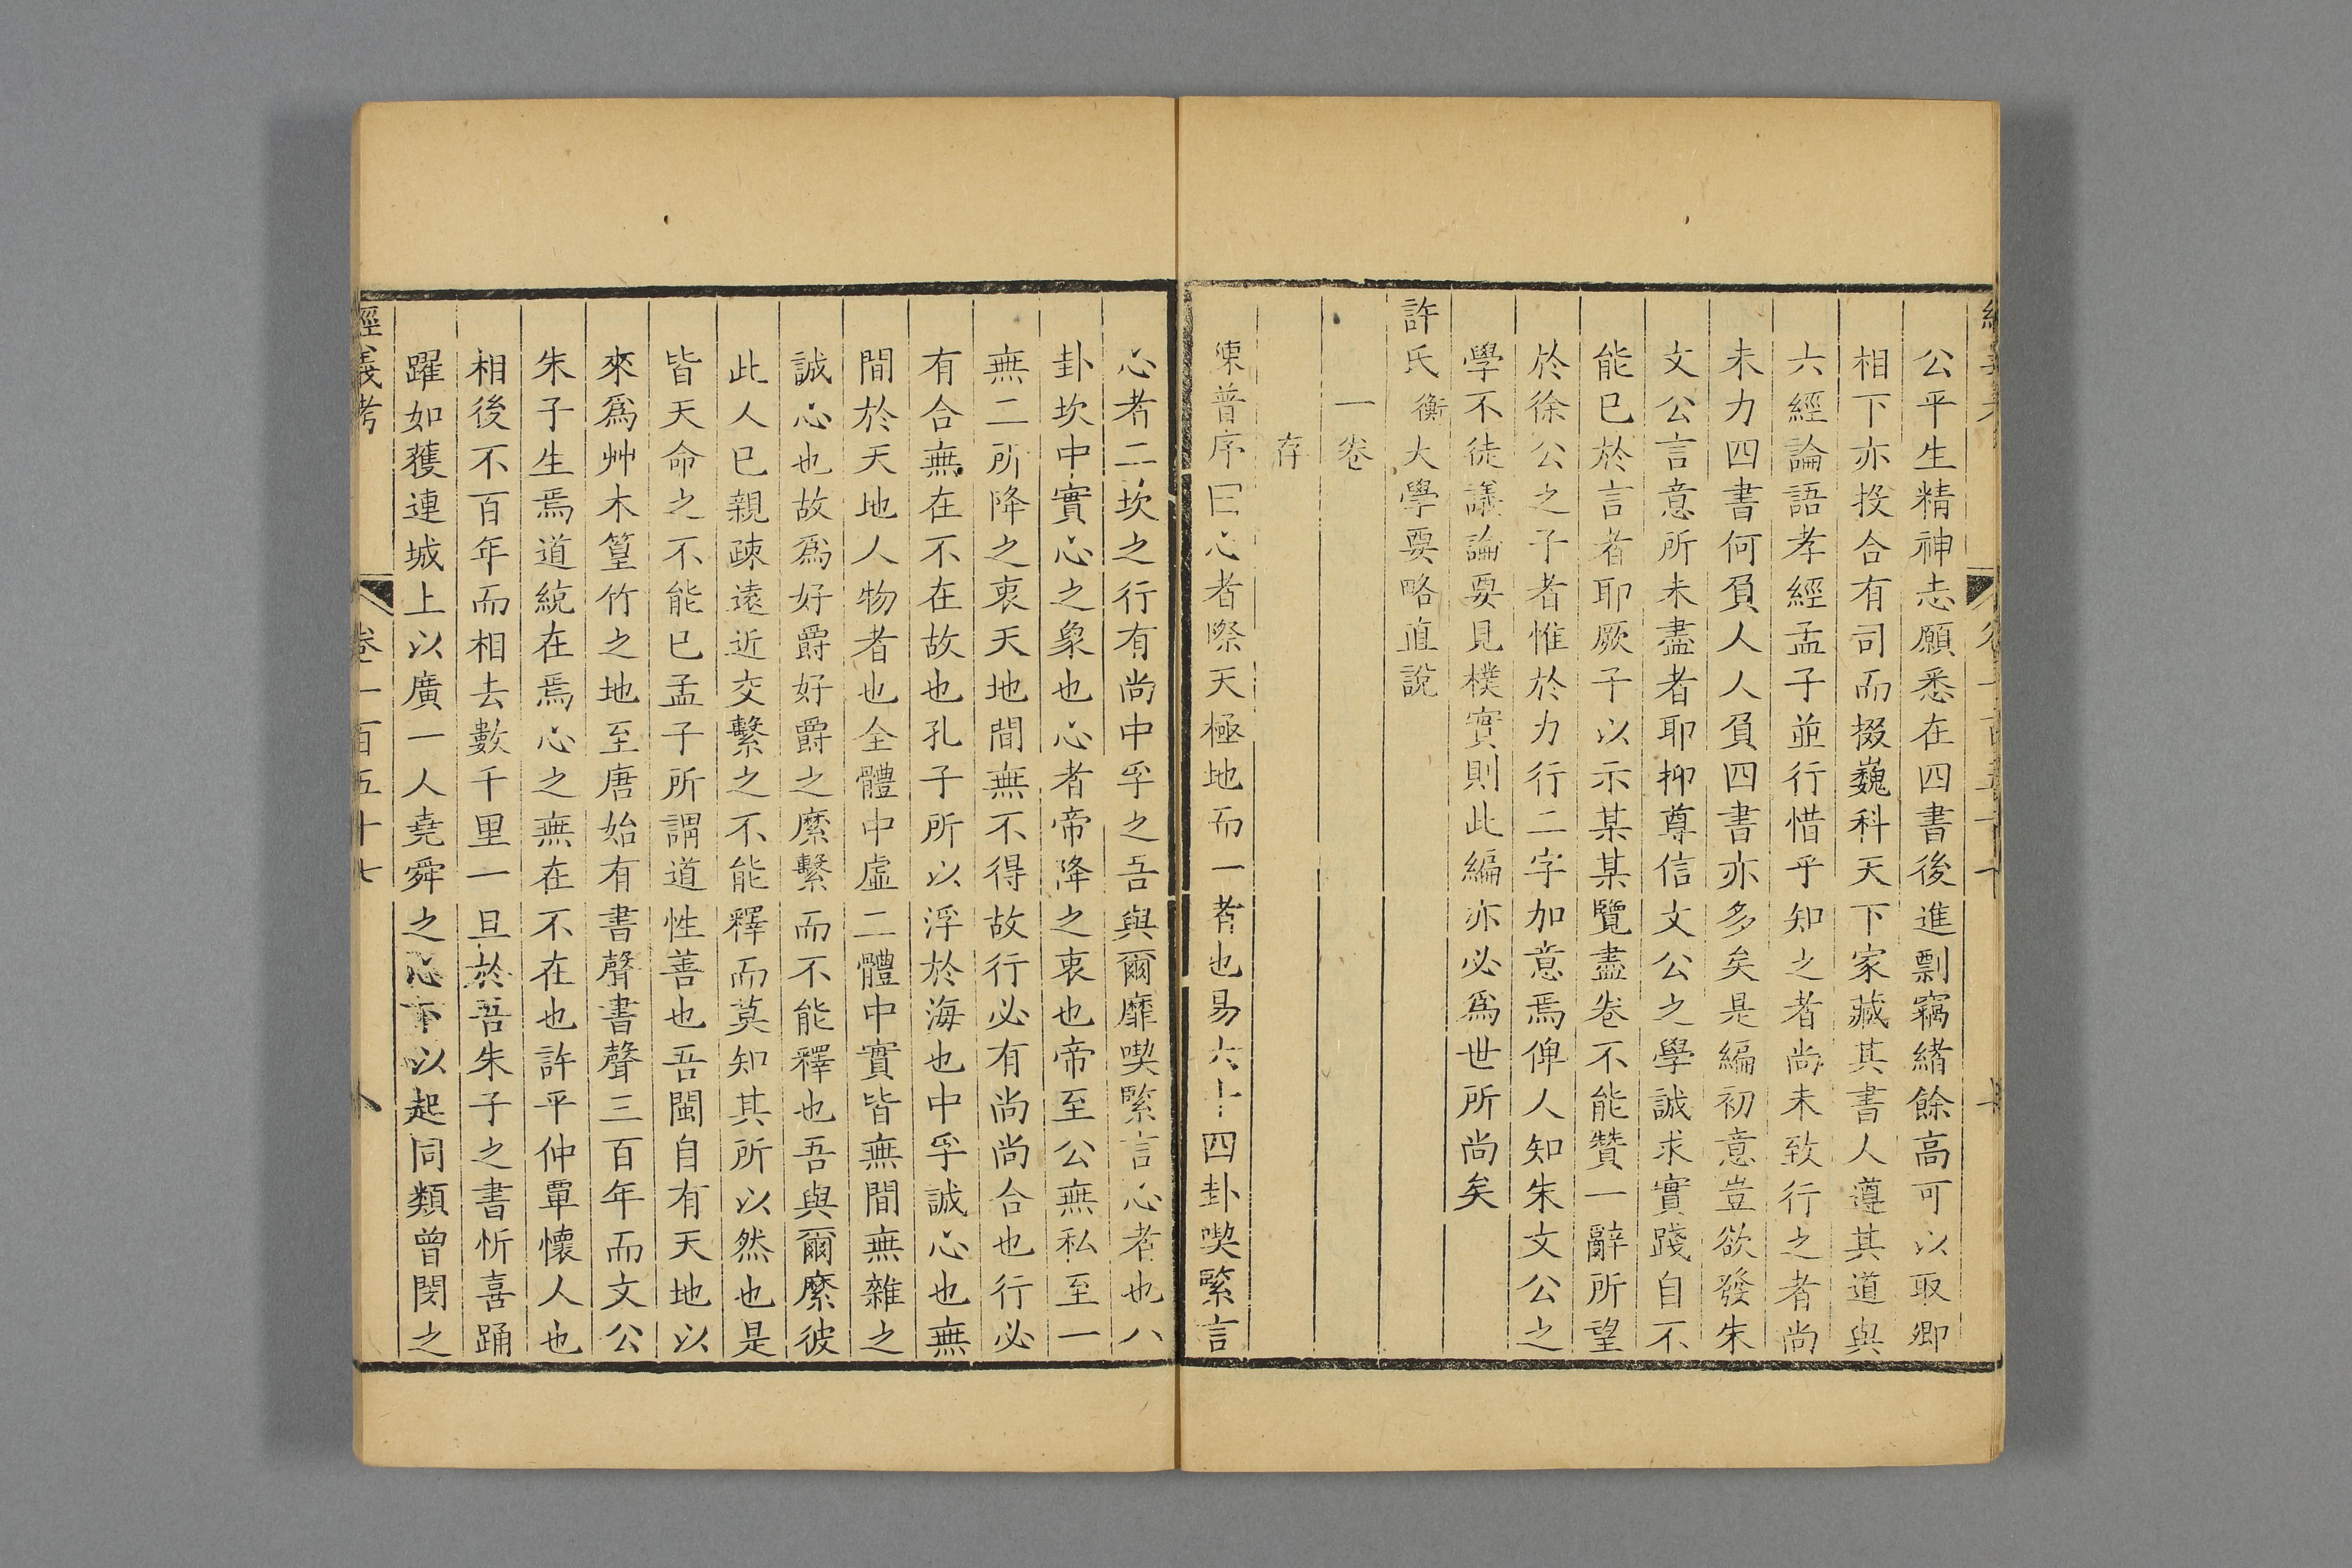 公平生精神志願悉在四書後進剽竊緒餘高可以取卿
相下亦投合有司而掇巍科天下家藏其書人遵其道與
六經論語孝經孟子並行惜乎知之者尚未致行之者尚
未力四書何負人人負四書亦多矣是編初意豈欲發朱
文公言意所未盡者耶抑尊信文公之學誠求實踐自不
能已於言者耶厥子以示某某覽盡卷不能贊一辭所望
於徐公之子者惟於力行二字加意焉俾人知朱文公之
學不徒議論要見樸實則此編亦必爲世所尚矣
許氏衡大學要略直說
一卷
存
陳普序曰心者際天極地而一者也易六十四卦喫緊言
心者二坎之行有尚中孚之吾與爾靡喫緊言心者也八
卦坎中實心之象也心者帝降之衷也帝至公無私至一
無二所降之衷天地間無不得故行必有尚尚合也行必
有合無在不在故也孔子所以浮於海也中孚誠心也無
間於天地人物者也全體中虛二體中實皆無間無雜之
誠心也故爲好爵好爵之縻繫而不能釋也吾與爾縻彼
此人已親疎遠近交繫之不能釋而莫知其所以然也是
皆天命之不能已孟子所謂道性善也吾閩自有天地以
來爲艸木篁竹之地至唐始有書聲書聲三百年而文公
朱子生焉道統在焉心之無在不在也許平仲覃懷人也
相後不百年而相去數千里一旦於吾朱子之書忻喜踊
躍如獲連城上以廣一人堯舜之心下以起同類曾閔之
經義考 卷一百五十七